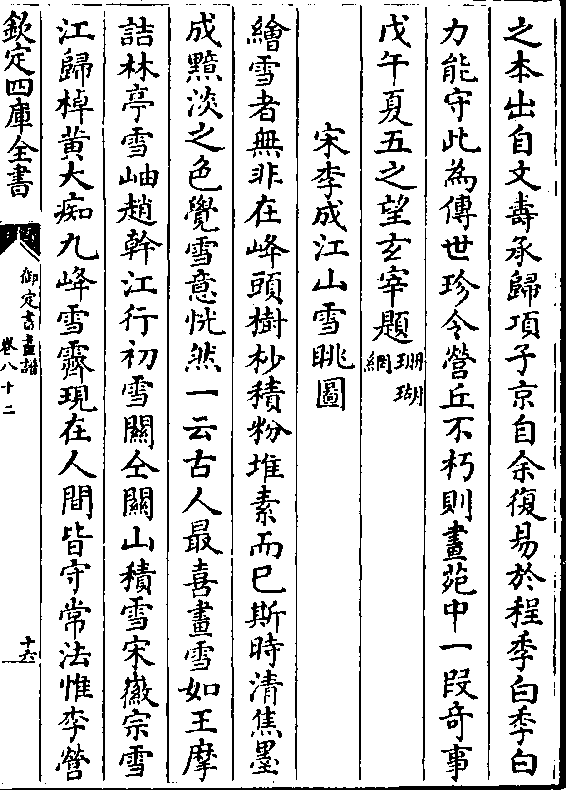 之本出自文壽承歸項子京自余復易於程季白季白
力能守此為傳世珍令營丘不朽則畫苑中一段奇事
戊午夏五之望玄宰題珊瑚網
宋李成江山雪眺圖
繪雪者無非在峰頭樹杪積粉堆素而已斯時清焦墨
成黯淡之色覺雪意恍然一云古人最喜畫雪如王摩
詰林亭雪岫趙幹江行初雪關仝關山積雪宋徽宗雪
江歸棹黃大痴九峰雪霽現在人間皆守常法惟李營
欽定四庫全書
御定書畫譜
卷八十二
十五